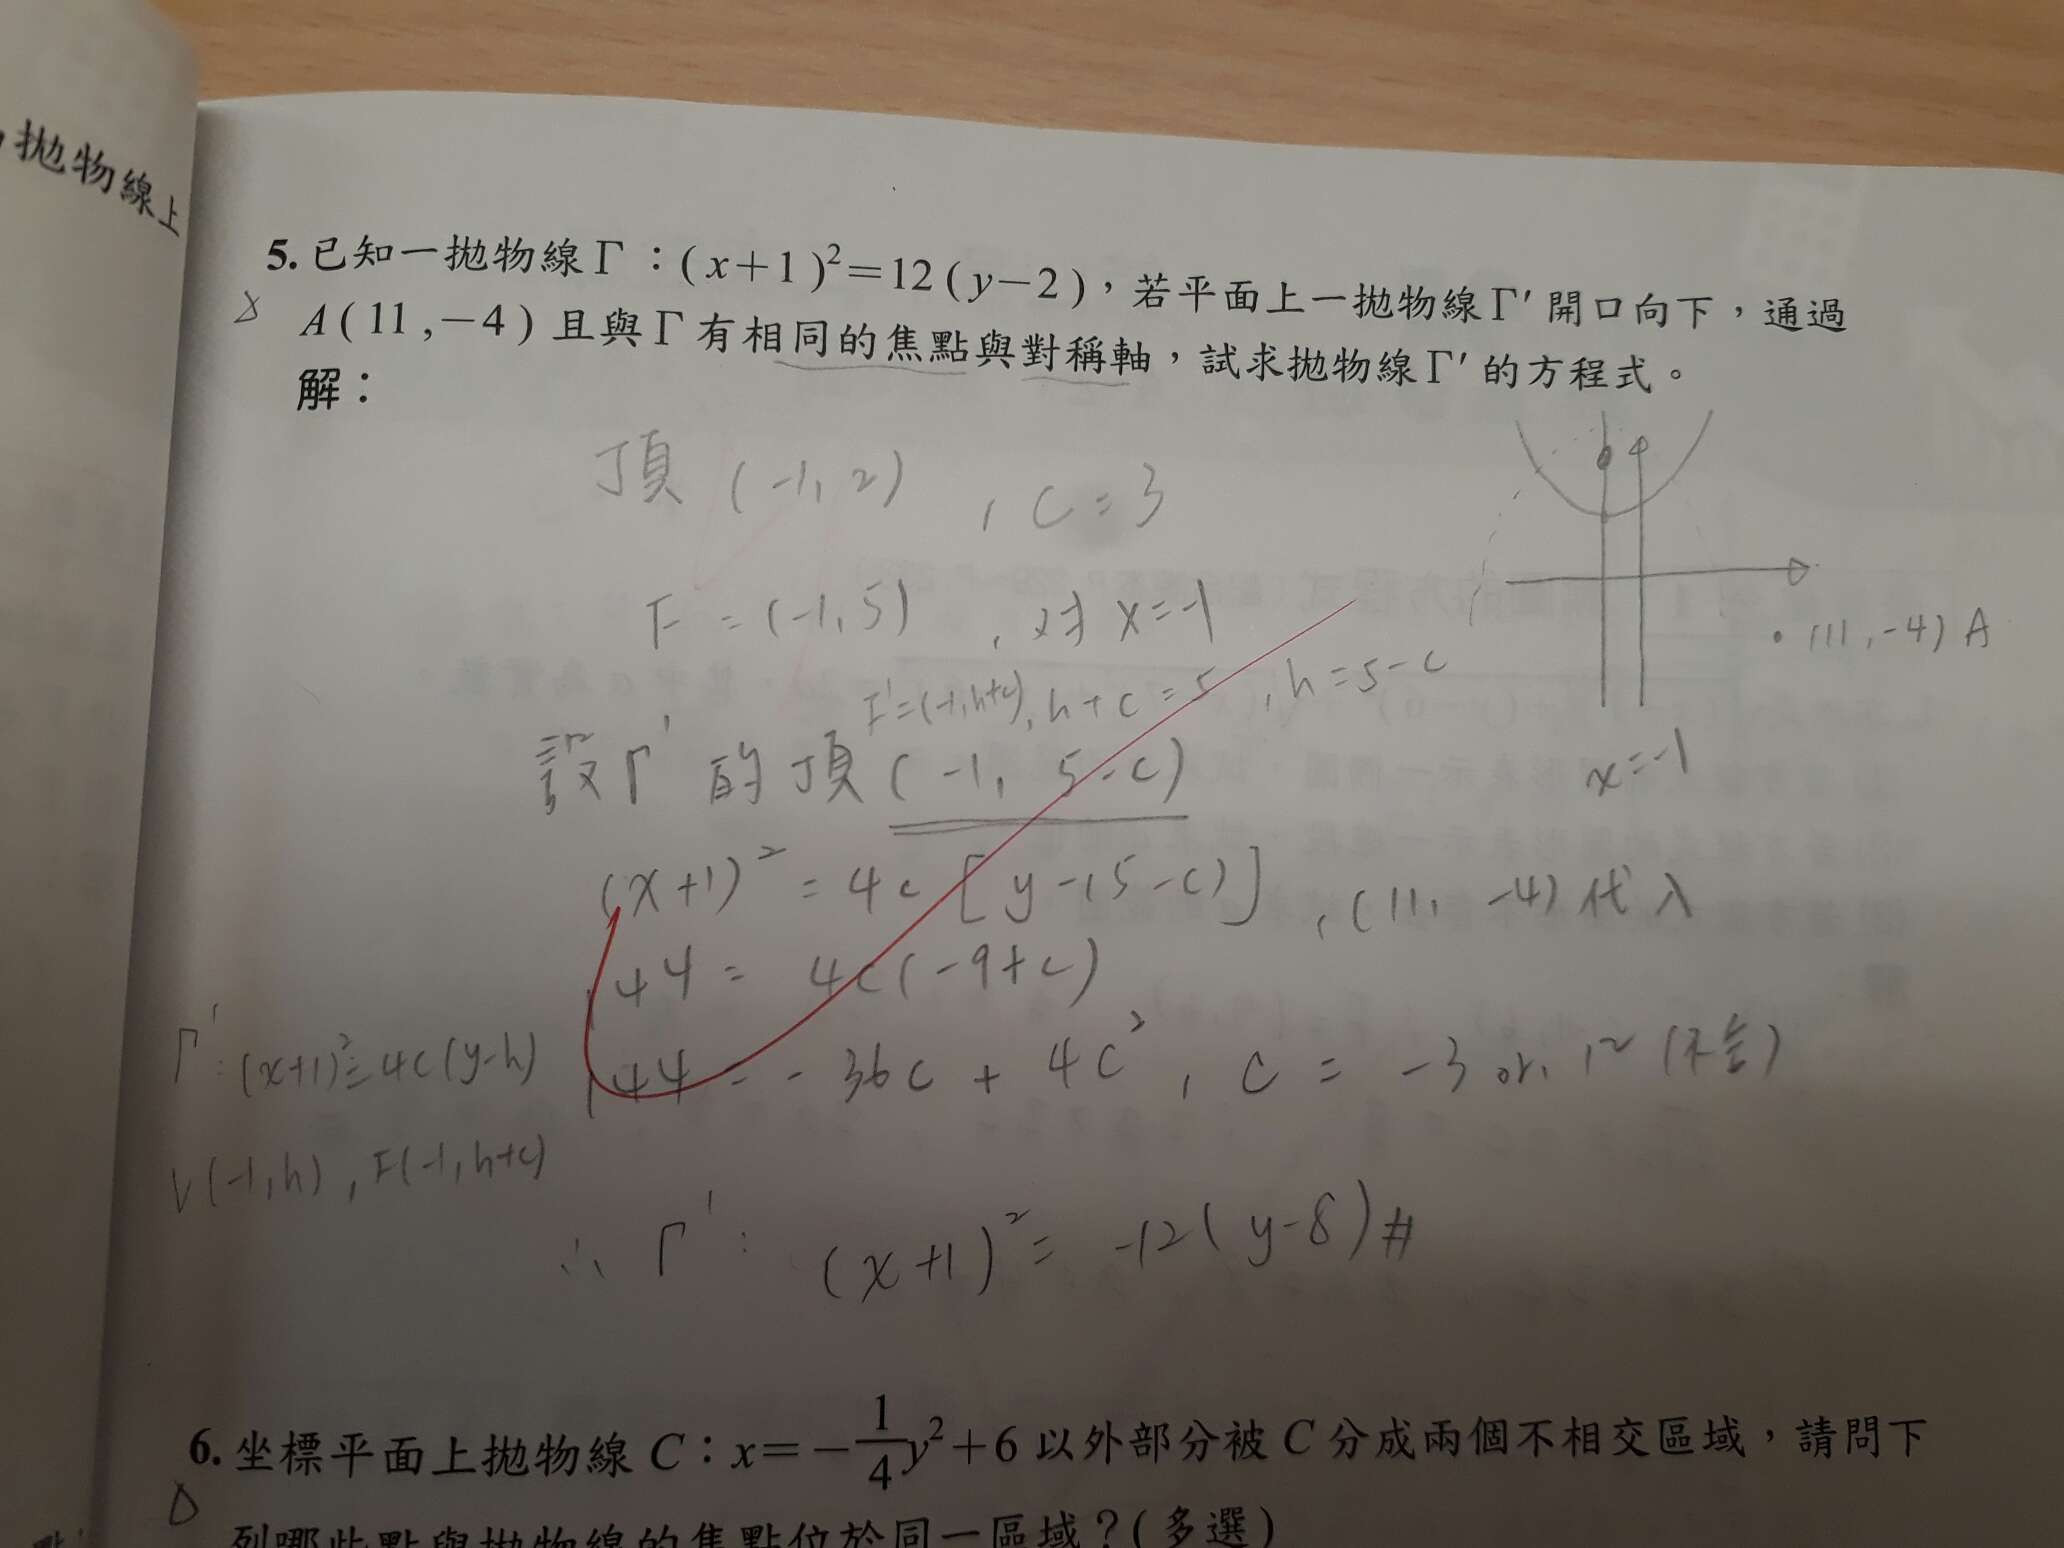 拋物線上
5. 已知一拋物線Γ：(x+1)²=12(y−2)，若平面上一拋物線Γ′開口向下，通過
A(11,−4)且與Γ有相同的焦點與對稱軸，試求拋物線Γ′的方程式。
解：
頂(-1,2), c=3
F=(-1,5), 對x=-1
(11,-4) A
F'=(-1,h+c), h+c=5, h=5-c
設Γ'的頂(-1, 5-c)
x=-1
(x+1)²=4c[y-(5-c)], (11, -4)代入
144= 4c(-9+c)
144=-36c+4c², c= -3 or. 12(不合)
Γ': (x+1)²=4c(y-h)
V(-1,h), F(-1,h+c)
∴ Γ': (x+1)²= -12(y-8)#
6. 坐標平面上拋物線C：x=−1/4y²+6以外部分被C分成兩個不相交區域，請問下
列哪些點與拋物線的焦點位於同一區域？(多選)